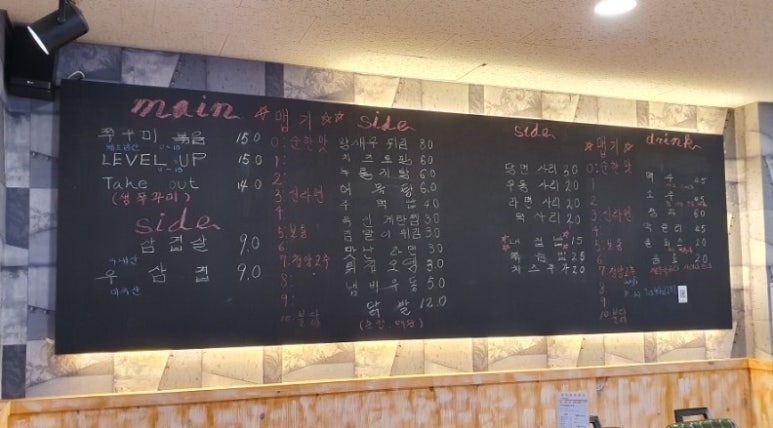 main
쭈꾸미 볶음 15.0
LEVEL UP 15.0
Take out 14.0
(생쭈꾸미)
side
삼겹살 9.0
우삼겹 9.0
맵기
0: 순한맛
1:
2:
3: 신라면
4:
5: 보통
6:
7: 청양고추
8:
9:
10: 불닭
side
왕새우튀김 8.0
치즈토핑 6.0
누룽지탕 6.0
어묵탕 6.0
주먹밥 4.0
폭신계란찜 3.0
김말이튀김 3.0
맛난라면 3.0
튀김오뎅 3.0
냄비우동 5.0
닭발 12.0
side
당면사리 3.0
우동사리 2.0
라면사리 2.0
떡사리 2.0
1.5
볶음밥 2.5
2.0
맵기
0: 순한맛
1
2
3: 신라면
4
5: 보통
6
7: 청양고추
8
9
10: 불닭
drink
맥주 4.5
소주
청하 6.0
막걸리 4.5
음료수 2.0
2.0